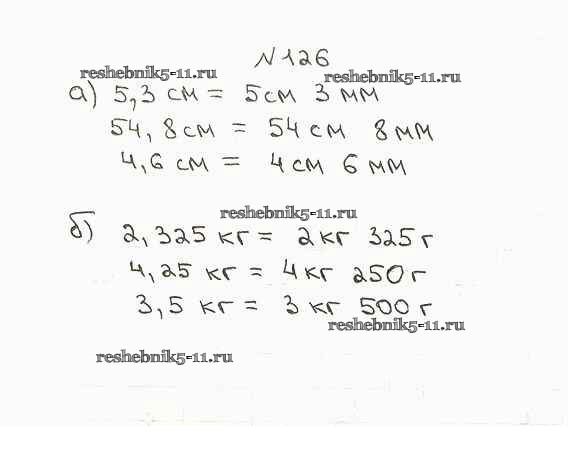 № 126
reshebnik5-11.ru reshebnik5-11.ru
а) 5,3 см = 5 см 3 мм
54,8 см = 54 см 8 мм
4,6 см = 4 см 6 мм
reshebnik5-11.ru
б) 2,325 кг = 2 кг 325 г
4,25 кг = 4 кг 250 г
3,5 кг = 3 кг 500 г
reshebnik5-11.ru
reshebnik5-11.ru